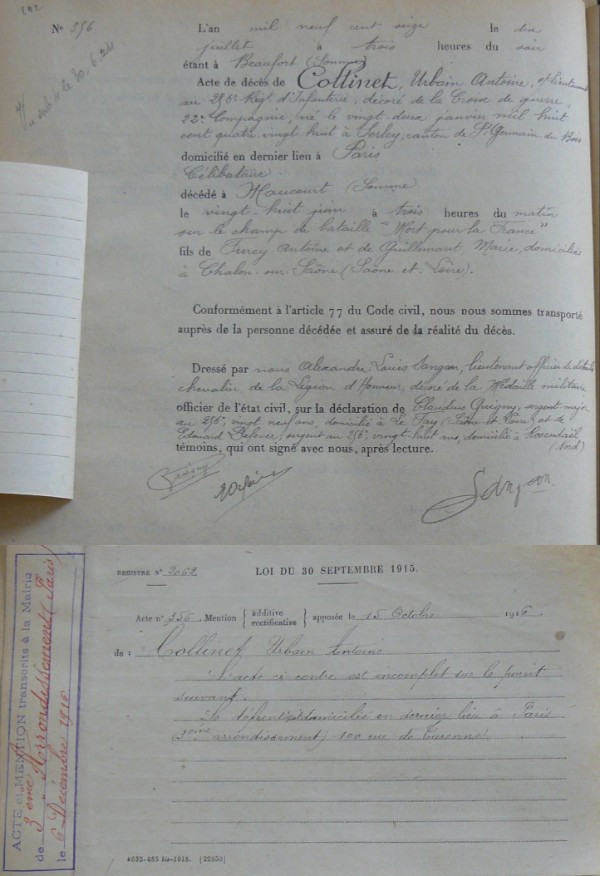 N° 356
L'an mil neuf cent seize le dix
juillet à trois heures du soir
étant à Beaufort (Somme)
Acte de décès de Collinet, Urbain Antoine, s/Lieutenant
au 256e Régt d'Infanterie, décoré de la Croix de guerre,
22e Compagnie, né le vingt-deux janvier mil huit
cent quatre vingt huit à Serley, canton de St Germain du Bois
domicilié en dernier lieu à Paris
Célibataire
décédé à Maucourt (Somme)
le vingt-huit juin à trois heures du matin
sur le champ de bataille "Mort pour la France"
fils de Antoine et de Guillemaut Marie, domiciliés
à Chalon-sur-Saône (Saône et Loire).
Conformément à l'article 77 du Code civil, nous nous sommes transporté
auprès de la personne décédée et assuré de la réalité du décès.
Dressé par nous Alexandre Louis Sangan, lieutenant officier de
chevalier de la Légion d'Honneur, décoré de la Médaille militaire
officier de l'état civil, sur la déclaration de Claudius Guigny, sergent major
au 256e, vingt neuf ans, domicilié à Le Fay (Saône et Loire) et de
Edouard sergent au 256e, vingt-huit ans, domicilié à Rosendaël
(Nord)
témoins, qui ont signé avec nous, après lecture.
Guigny
Sangan
ACTE et MENTION transcrits à la Mairie
de 3eme Arrondissement (Paris)
le 6 Décembre 1916
REGISTRE N° 2062 LOI DU 30 SEPTEMBRE 1915.
Acte n° 356. Mention { additive rectificative } apposée le 15 Octobre 1916
de : Collinet Urbain Antoine
L'acte ci contre est incomplet sur le point
suivant.
Le défunt est domicilié en dernier lieu à Paris
(3eme arrondissement) 100 rue de Turenne